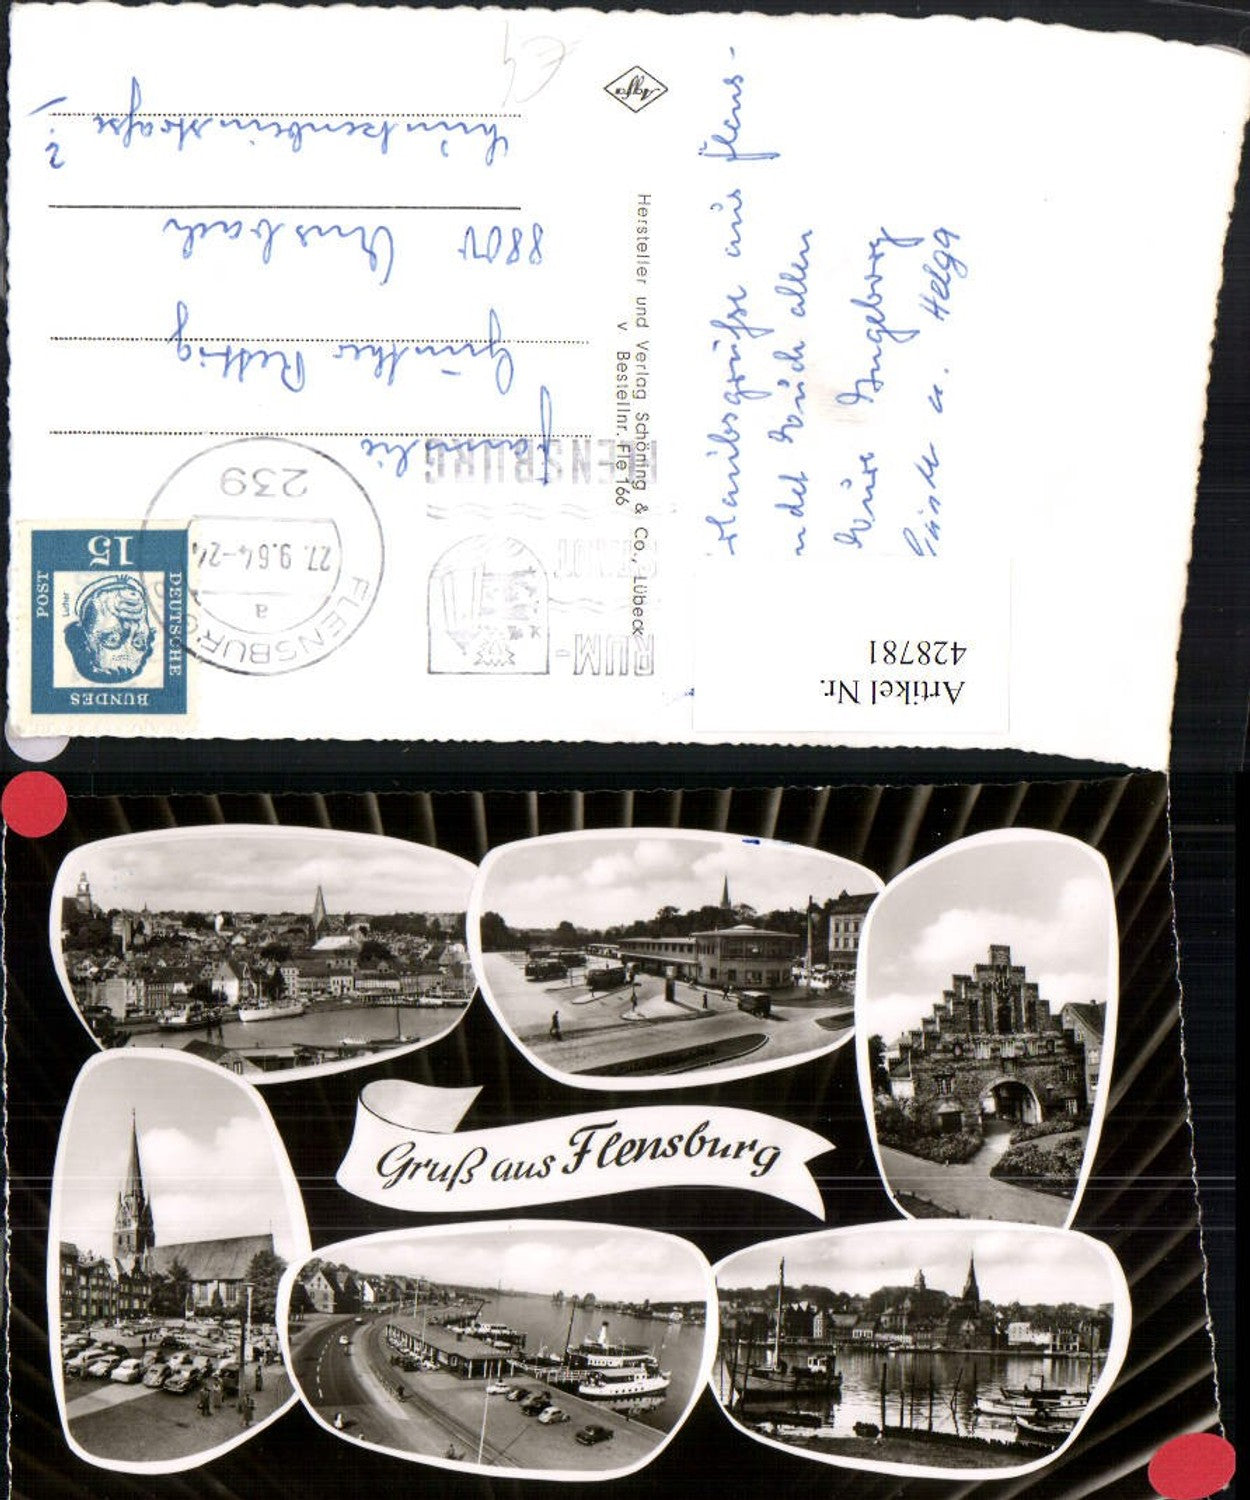 Urlaubsgrüße aus Flens-
Euch allen
Eure Ingeborg
u. Helga
Hersteller und Verlag Schöning & Co., Lübeck
v Bestellnr. Fle 166
Agfa
Familie
Günther Rettig
8800 Ansbach
2
DEUTSCHE
BUNDES
POST
15
Luther
239
27.9.64-24
a
FLENSBURG
FLENSBURG
RUM-
Artikel Nr.
428781
Gruß aus Flensburg